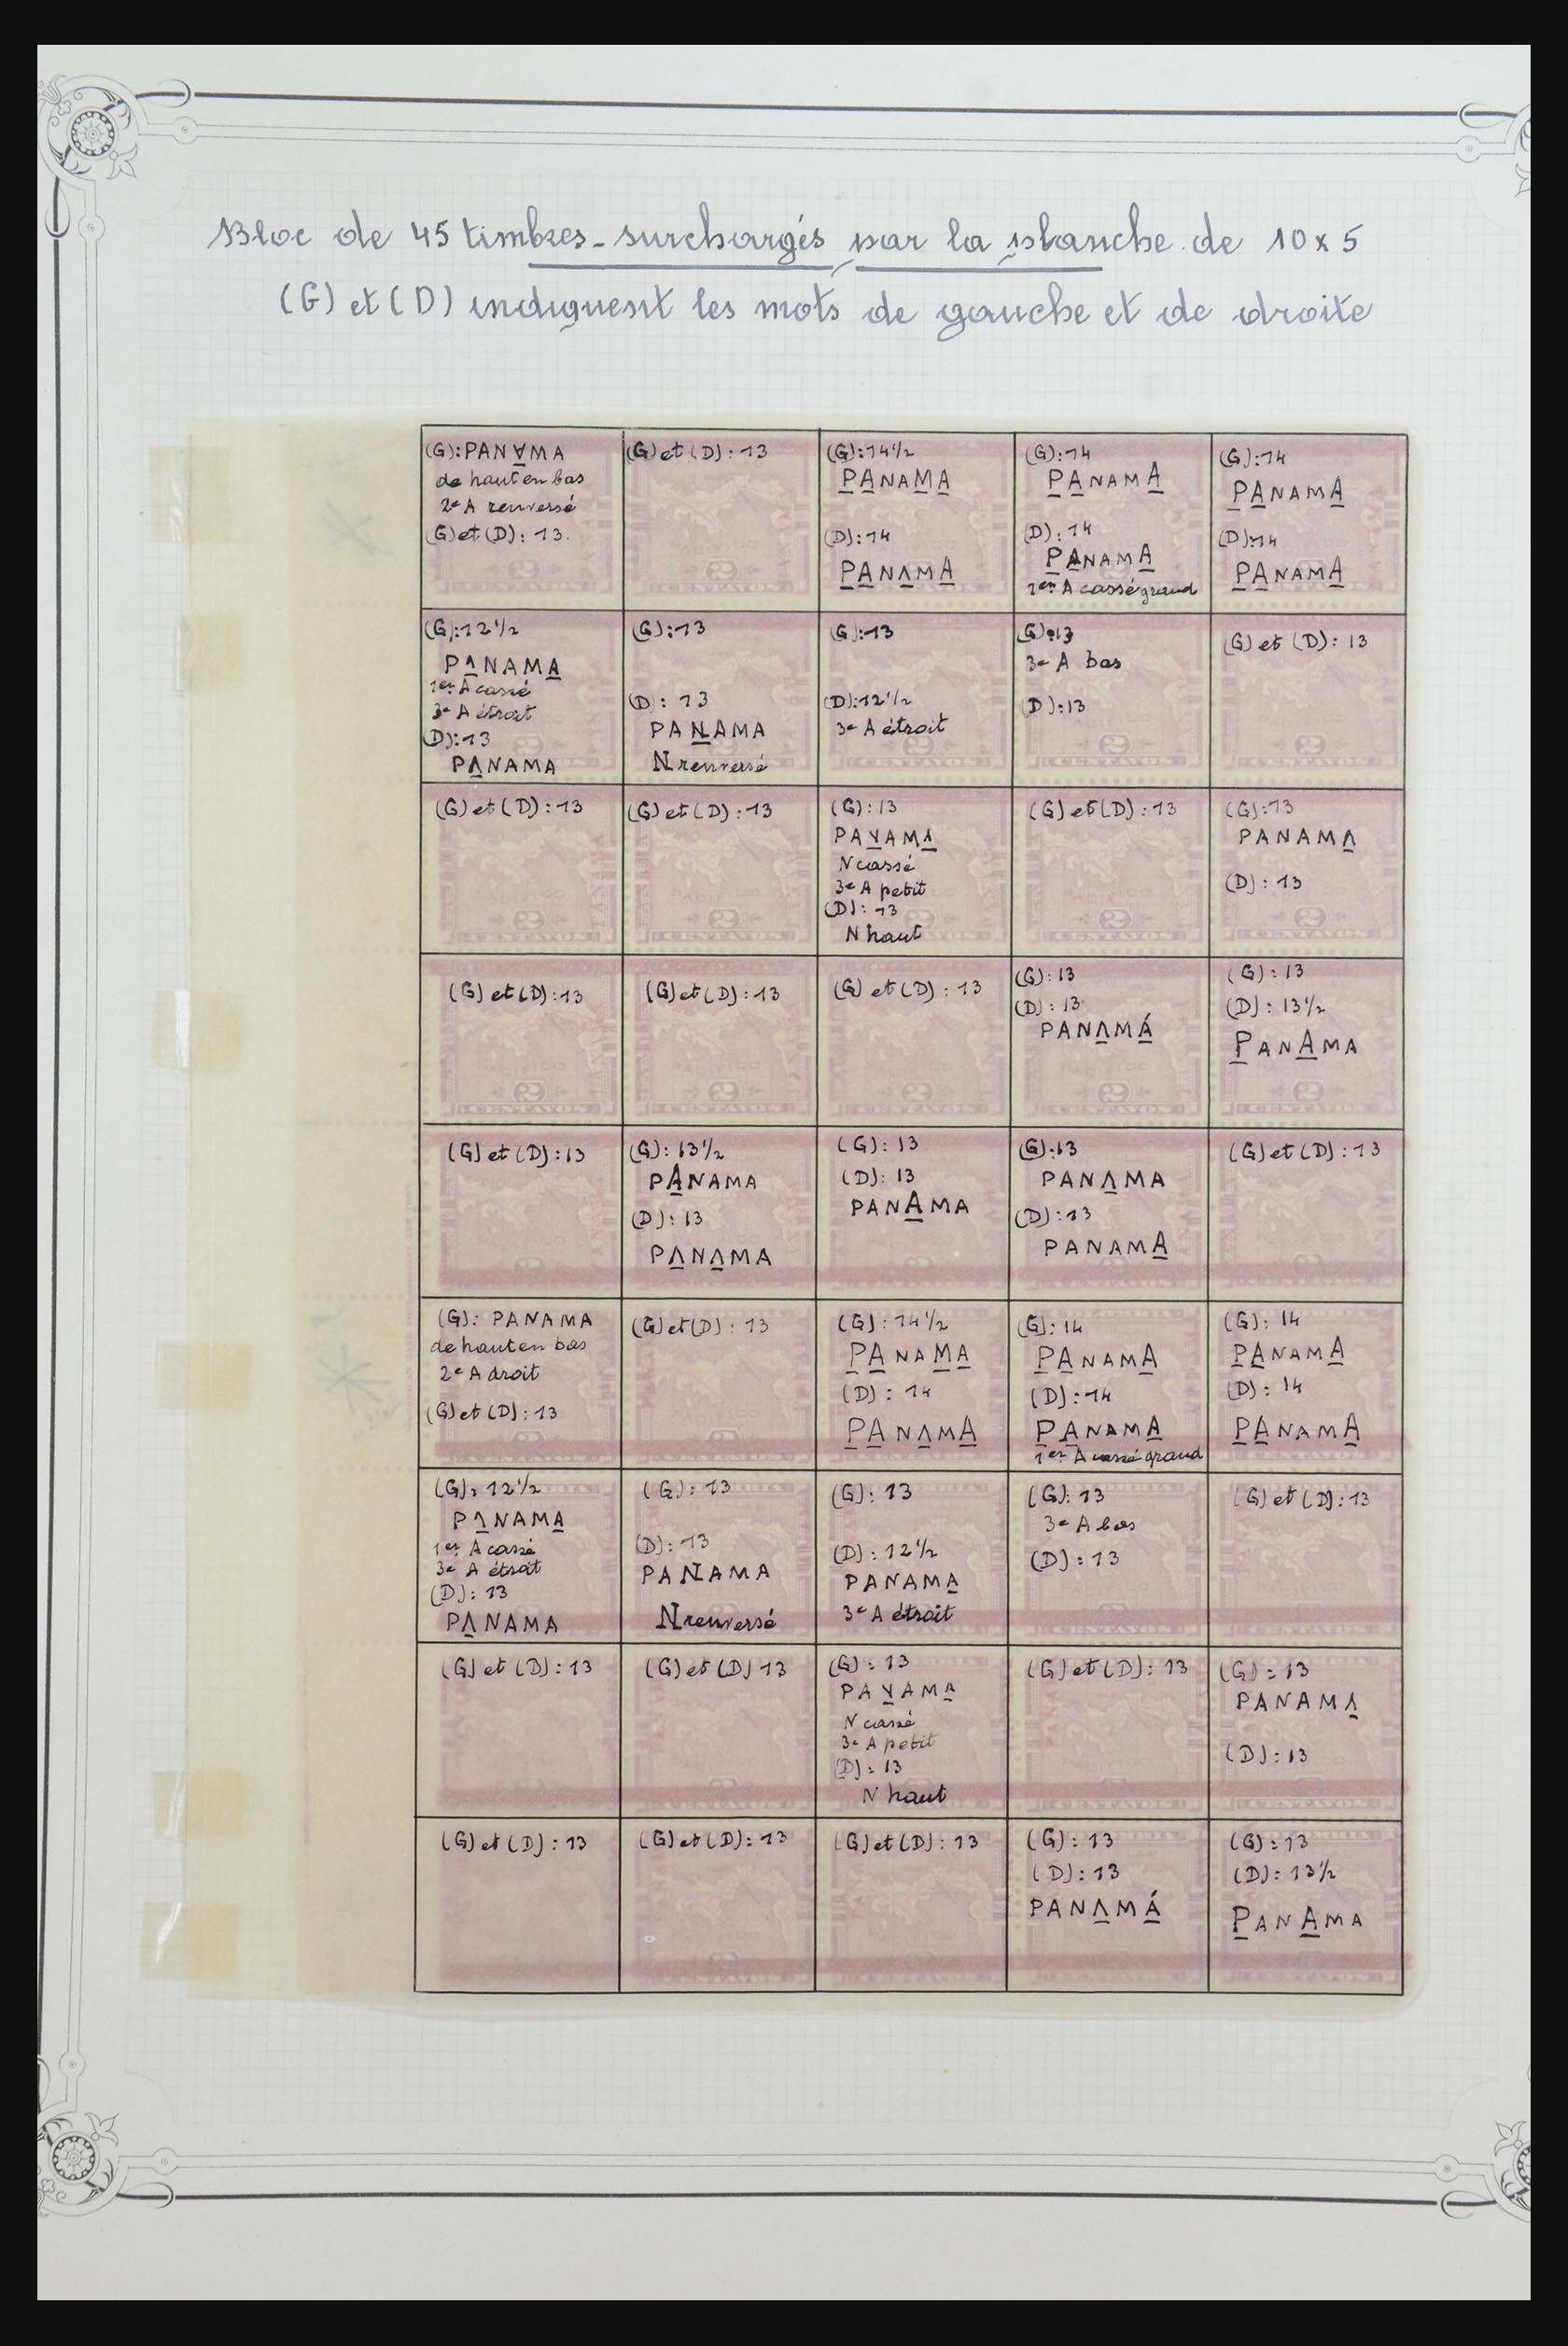 Bloc de 45 timbres - surchargés par la planche de 10 x 5
(G) et (D) indiquent les mots de gauche et de droite
(G): PAN∀MA
de haut en bas
2e A renversé
(G) et (D): 13.
(G) et (D): 13
(G): 14 1/2
PANAMA
(D): 14
PANΛMA
(G): 14
PANAMA
(D): 14
PANAMA
1er A cassé grand
(G): 14
PANAMA
(D): 14
PANAMA
(G): 12 1/2
PΛNAMA
1er A cassé
3e A étroit
(D): 13
PΛNAMA
(G): 13
(D): 13
PANAMA
N renversé
(G): 13
(D): 12 1/2
3e A étroit
(G): 13
3e A bas
(D): 13
(G) et (D): 13
(G) et (D): 13
(G) et (D): 13
(G): 13
PAYAMA
N cassé
3e A petit
(D): 13
N haut
(G) et (D): 13
(G): 13
PANAMΛ
(D): 13
(G) et (D): 13
(G) et (D): 13
(G) et (D): 13
(G): 13
(D): 13
PANΛMÁ
(G): 13
(D): 13 1/2
PANAMA
(G) et (D): 13
(G): 13 1/2
PANAMA
(D): 13
PΛNΛMA
(G): 13
(D): 13
PANAMA
(G): 13
PANΛMA
(D): 13
PANAMA
(G) et (D): 13
(G): PANAMA
de haut en bas
2e A droit
(G) et (D): 13
(G) et (D): 13
(G): 14 1/2
PANAMA
(D): 14
PANΛMA
(G): 14
PANAMA
(D): 14
PANAMA
1er A cassé grand
(G): 14
PANAMA
(D): 14
PANAMA
(G): 12 1/2
PΛNAMA
1er A cassé
3e A étroit
(D): 13
PΛNAMA
(G): 13
(D): 13
PANAMA
N renversé
(G): 13
(D): 12 1/2
PANAMA
3e A étroit
(G): 13
3e A bas
(D): 13
(G) et (D): 13
(G) et (D): 13
(G) et (D) 13
(G): 13
PAYAMA
N cassé
3e A petit
(D): 13
N haut
(G) et (D): 13
(G): 13
PANAMΛ
(D): 13
(G) et (D): 13
(G) et (D): 13
(G) et (D): 13
(G): 13
(D): 13
PANΛMÁ
(G): 13
(D): 13 1/2
PANAMA